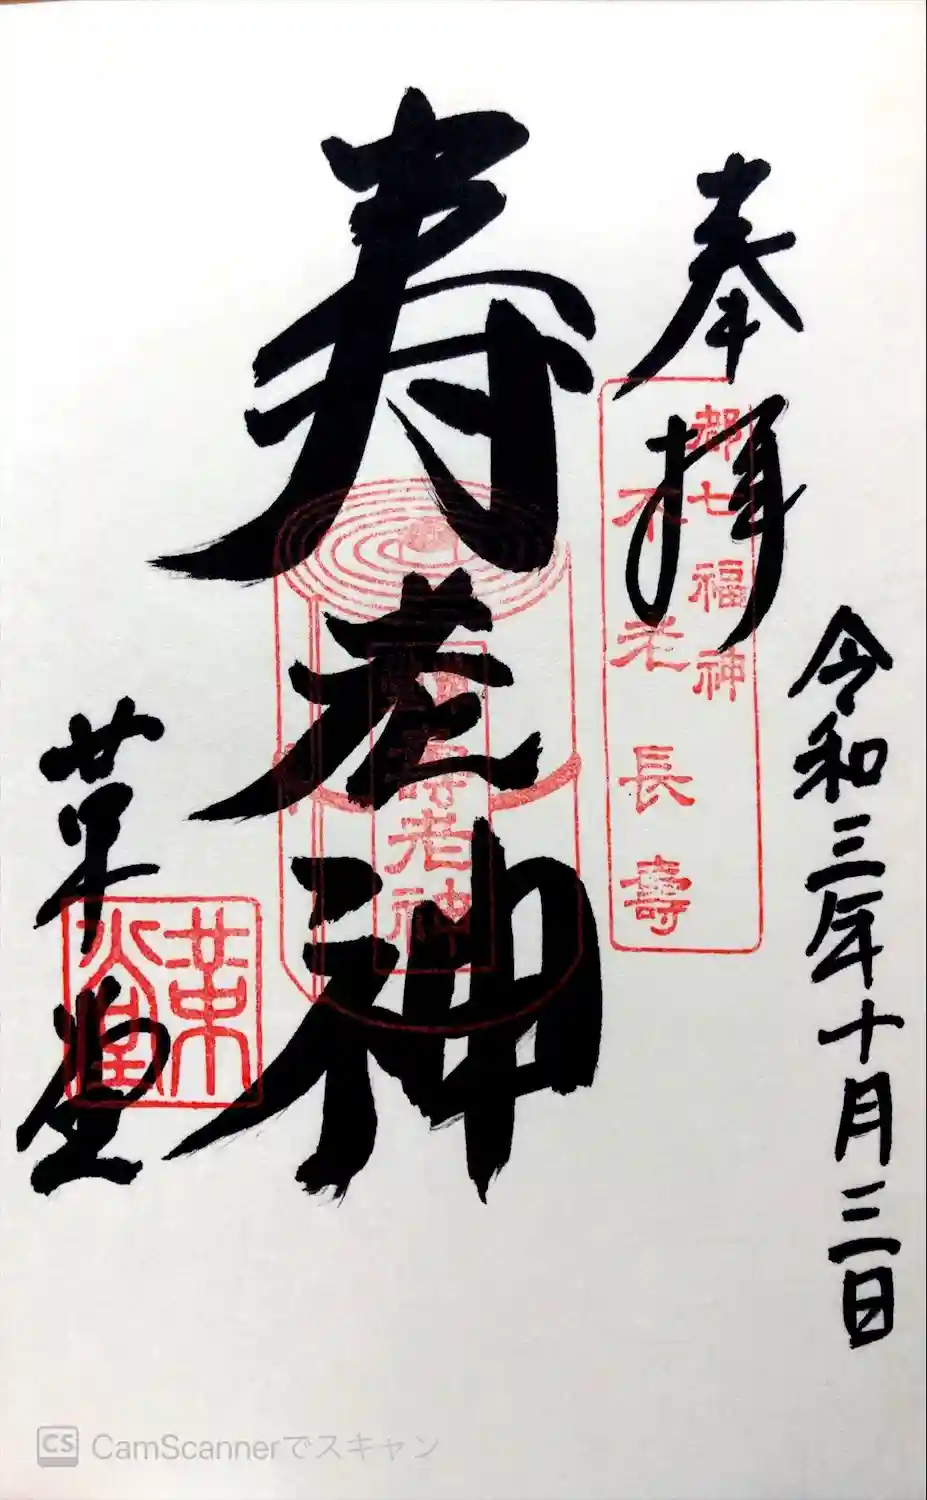 奉拝
都七福神
不老長壽
令和三年十月三日
寿老神
壽老神
革堂
革堂
CS CamScannerでスキャン